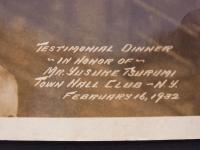 TESTIMONIAL DINNER
~ IN HONOR OF ~
MR. YUSUKE TSURUMI
TOWN HALL CLUB ~ N.Y.
FEBRUARY 16, 1932